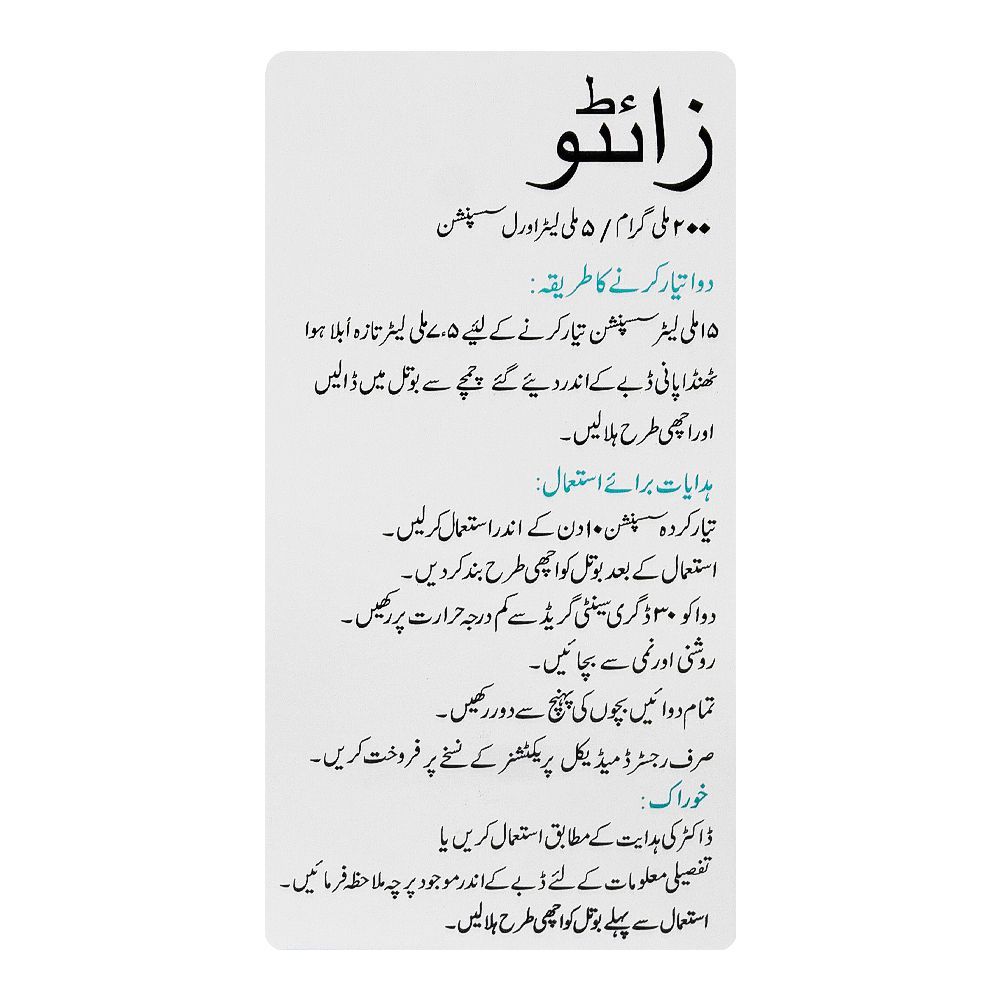 زائٹو
۲۰۰ ملی گرام / ۵ ملی لیٹر اورل سسپنشن
دوا تیار کرنے کا طریقہ:
۱۵ ملی لیٹر سسپنشن تیار کرنے کے لئیے ۷ء۵ ملی لیٹر تازہ اُبلا ہوا
ٹھنڈا پانی ڈبے کے اندر دیئے گئے چمچے سے بوتل میں ڈالیں
اور اچھی طرح ہلالیں۔
ہدایات برائے استعمال:
تیار کردہ سسپنشن ۱۰ دن کے اندر استعمال کرلیں۔
استعمال کے بعد بوتل کو اچھی طرح بند کردیں۔
دوا کو ۳۰ ڈگری سینٹی گریڈ سے کم درجہ حرارت پر رکھیں۔
روشنی اور نمی سے بچائیں۔
تمام دوائیں بچوں کی پہنچ سے دور رکھیں۔
صرف رجسٹرڈ میڈیکل پریکٹشنر کے نسخے پر فروخت کریں۔
خوراک:
ڈاکٹر کی ہدایت کے مطابق استعمال کریں یا
تفصیلی معلومات کے لئے ڈبے کے اندر موجود پرچہ ملاحظہ فرمائیں۔
استعمال سے پہلے بوتل کو اچھی طرح ہلالیں۔